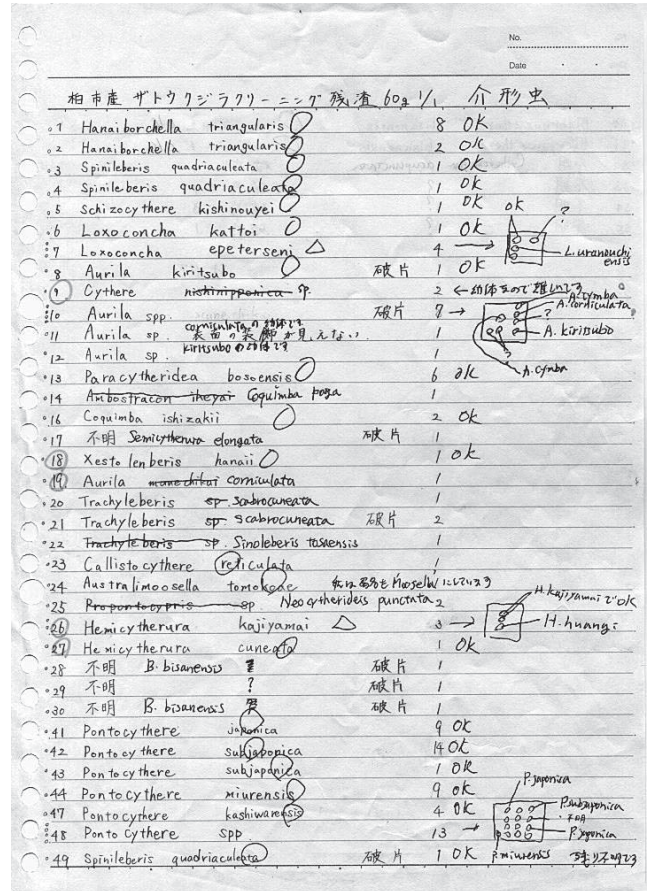 No.
Date
柏市産 ザトウクジラクリーニング残渣 60g 1/1 介形虫
1 Hanaiborchella triangularis 8 OK
2 Hanaiborchella triangularis 2 OK
3 Spinileberis quadriaculeata 1 OK
4 Spinileberis quadriaculeata 1 OK
5 Schizocythere kishinouyei 1 OK OK ?
6 Loxoconcha kattoi 1 OK
7 Loxoconcha epeterseni △ 4 → L.uranouchiensis
8 Aurila kiritsubo 破片 1 OK
9 Cythere nishinipponica sp. 2 ←幼体なので難いです
10 Aurila spp. 破片 7 → A.cymba A.corniculata ? A.kiritsubo A.cymba
11 Aurila sp. corniculataの幼体です 表面の装飾が見えない 1
12 Aurila sp. kiritsuboの幼体です 1
13 Paracytheridea bosoensis 6 OK
14 Ambostracon ikeyai Coquimba poga 1
16 Coquimba ishizakii 2 OK
17 不明 Semicytherura elongata 破片 1
18 Xestolenberis hanaii 1 OK
19 Aurila corniculata 1
20 Trachyleberis sp scabrocuneata 1
21 Trachyleberis sp scabrocuneata 破片 2
22 Trachyleberis sp. Sinoleberis tosaensis 1
23 Callistocythere reticulata 1
24 Australimoosella tomokoae 私は属名をMoosellaにしています 1
25 Propontocypris sp Neocytherideis punctata 2
26 Hemicytherura kajiyamai △ 3 → H.kajiyamaiでOK H.huangi
27 Hemicytherura cuneata 1 OK
28 不明 B. bisanensis 破片 1
29 不明 ? 破片 1
30 不明 B. bisanensis 破片 1
41 Pontocythere japonica 9 OK
42 Pontocythere subjaponica 14 OK
43 Pontocythere subjaponica 1 OK
44 Pontocythere miurensis 9 OK
47 Pontocythere kashiwarensis 4 OK
48 Pontocythere spp. 13 → P.japonica P.subjaponica 不明 P.japonica P.miurensis 残り不明です
49 Spinileberis quadriaculeata 破片 1 OK